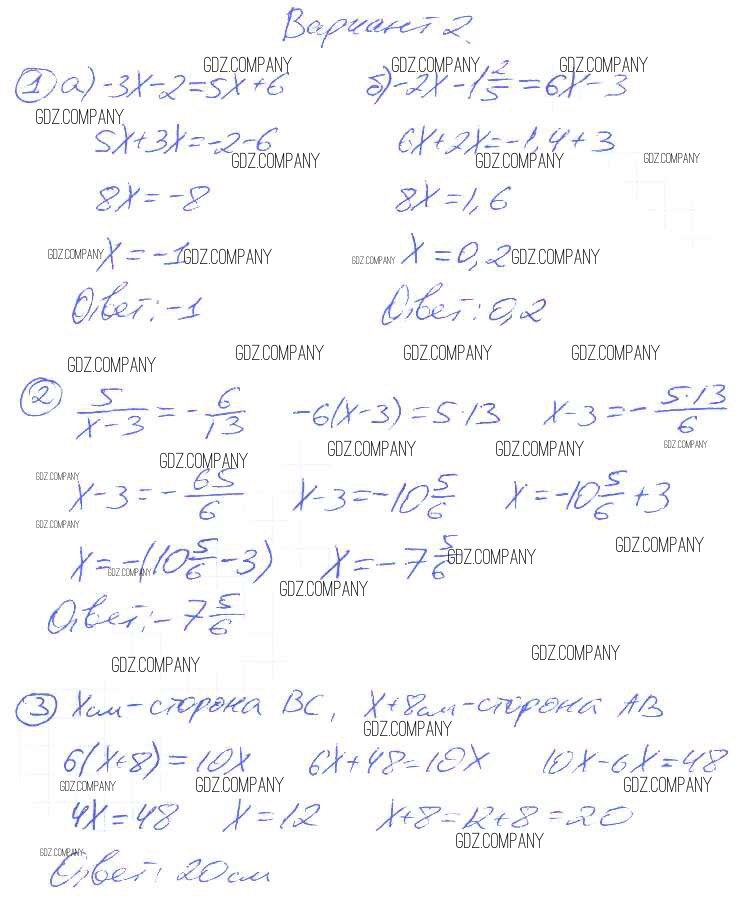 Вариант 2.
GDZ.COMPANY GDZ.COMPANY GDZ.COMPANY
① а) -3x-2=5x+6 б) -2x-1 2/5 =6x-3
GDZ.COMPANY
5x+3x=-2-6 6x+2x=-1,4+3
GDZ.COMPANY GDZ.COMPANY GDZ.COMPANY
8x=-8 8x=1,6
GDZ.COMPANY x=-1 GDZ.COMPANY GDZ.COMPANY x=0,2 GDZ.COMPANY
Ответ: -1 Ответ: 0,2
GDZ.COMPANY GDZ.COMPANY GDZ.COMPANY GDZ.COMPANY
② 5/(x-3) = - 6/13 -6(x-3)=5·13 x-3=- 5·13/6
GDZ.COMPANY GDZ.COMPANY GDZ.COMPANY GDZ.COMPANY
GDZ.COMPANY
x-3=- 65/6 x-3=-10 5/6 x=-10 5/6 +3
GDZ.COMPANY
x=-(10 5/6 -3) x=-7 5/6 GDZ.COMPANY GDZ.COMPANY
GDZ.COMPANY GDZ.COMPANY
Ответ: -7 5/6
GDZ.COMPANY GDZ.COMPANY
③ xсм-сторона BC, x+8см-сторона AB
GDZ.COMPANY
6(x+8)=10x 6x+48=10x 10x-6x=48
GDZ.COMPANY GDZ.COMPANY GDZ.COMPANY
4x=48 x=12 x+8=12+8=20
GDZ.COMPANY
GDZ.COMPANY
Ответ: 20см